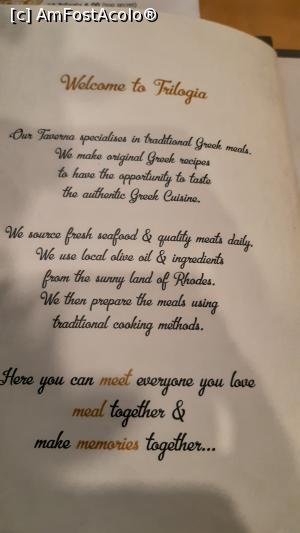 [c] AmFostAcolo®
Welcome to Trilogia
Our Taverna specialises in traditional Greek meals.
We make original Greek recipes
to have the opportunity to taste
the authentic Greek Cuisine.
We source fresh seafood & quality meats daily.
We use local olive oil & ingredients
from the sunny land of Rhodes.
We then prepare the meals using
traditional cooking methods.
Here you can meet everyone you love
meal together &
make memories together...